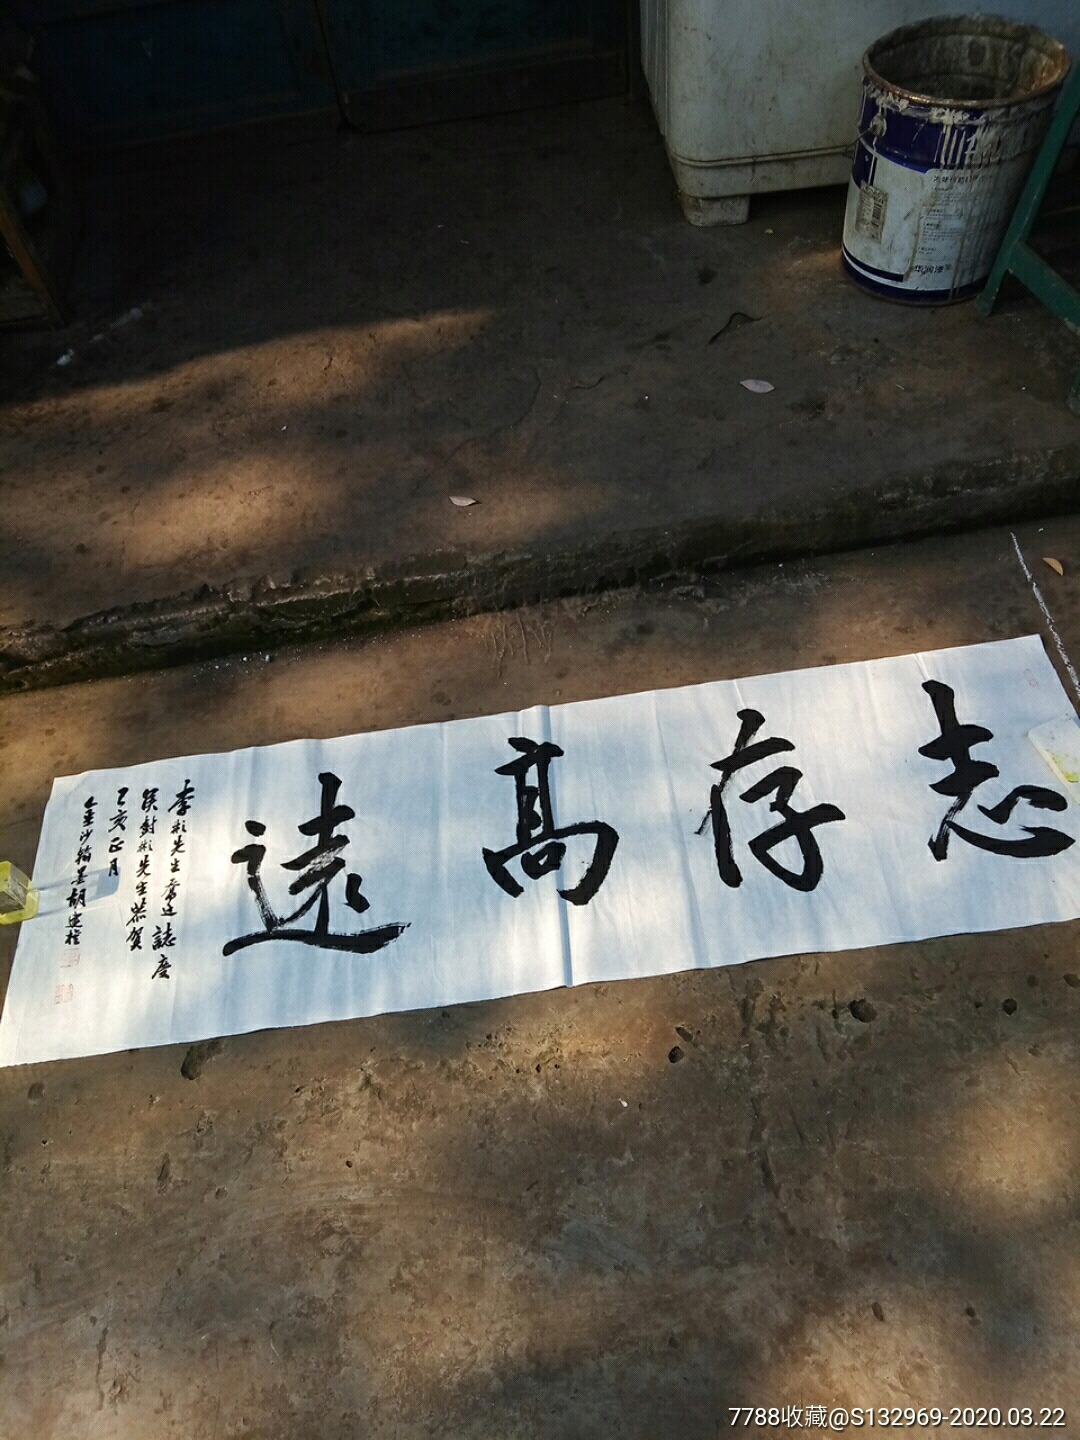 志存高遠
李彬先生喬迁誌慶
侯尌彬先生恭贺
己亥正月
金沙翰墨胡建
华润漆
7788收藏@S132969-2020.03.22